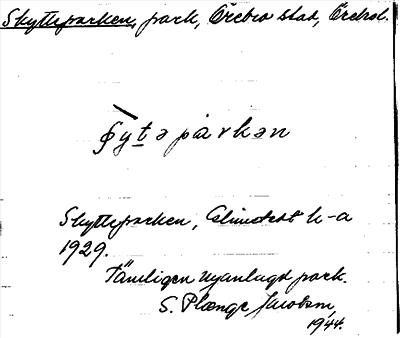 Skytteparken, park, Örebro stad, Örebrol.
ʃy̠t̠ə parkən
Skytteparken, Almstedt k-a
1929.
Tämligen nyanlagd park.
S. Plænge Jacobson
1944.